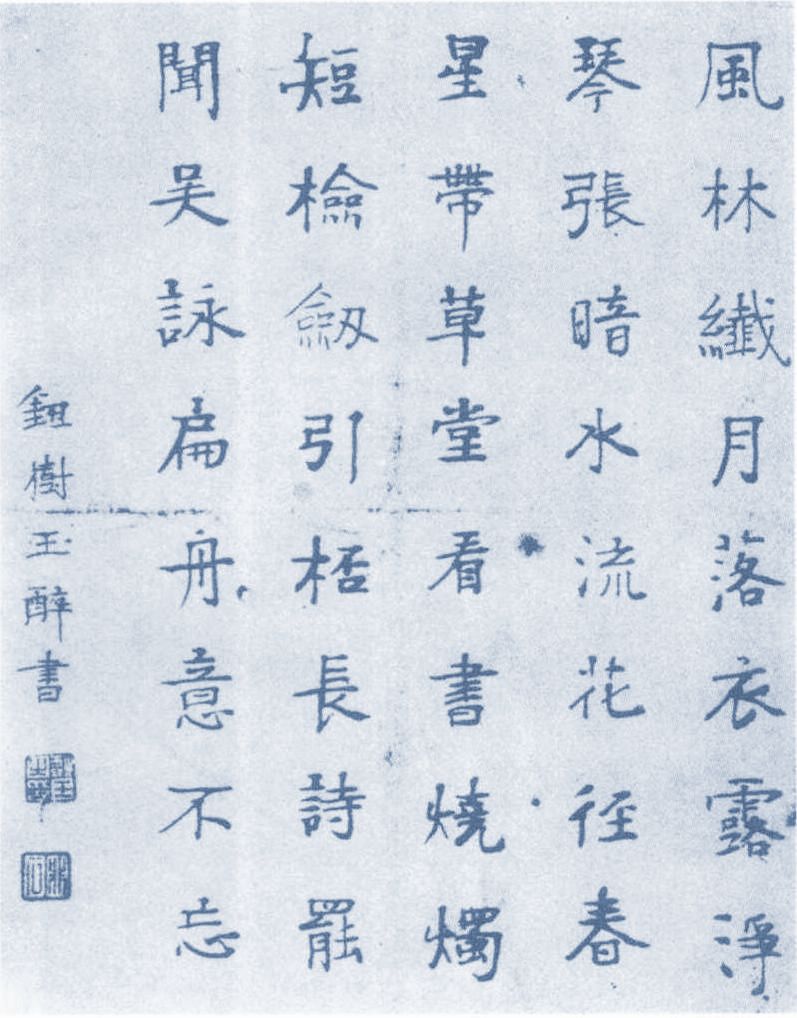 風林纖月落衣露淨
琴張暗水流花徑春
星帶草堂看書燒燭
短檢劔引桮長詩罷
聞吴詠扁舟意不忘
鈕樹玉醉書